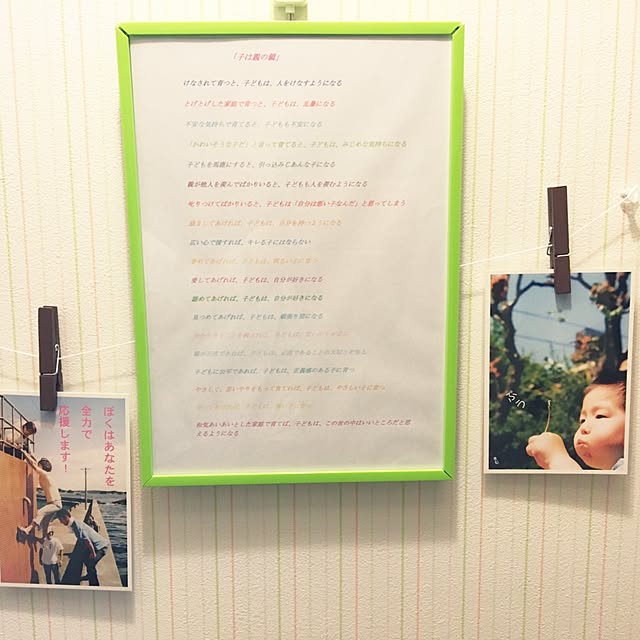 「子は親の鏡」
けなされて育つと、子どもは、人をけなすようになる
とげとげした家庭で育つと、子どもは、乱暴になる
不安な気持ちで育てると、子どもも不安になる
「かわいそうな子だ」と言って育てると、子どもは、みじめな気持ちになる
子どもを馬鹿にすると、引っ込みじあんな子になる
親が他人を羨んでばかりいると、子どもも人を羨むようになる
叱りつけてばかりいると、子どもは「自分は悪い子なんだ」と思ってしまう
励ましてあげれば、子どもは、自分を持つようになる
広い心で接すれば、キレる子にはならない
誉めてあげれば、子どもは、明るい子に育つ
愛してあげれば、子どもは、自分が好きになる
認めてあげれば、子どもは、自分が好きになる
見つめてあげれば、子どもは、頑張り屋になる
分かち合うことを教えれば、子どもは、思いやりを学ぶ
親が正直であれば、子どもは、正直であることの大切さを知る
子どもに公平であれば、子どもは、正義感のある子に育つ
やさしく、思いやりをもって育てれば、子どもは、やさしい子に育つ
守ってあげれば、子どもは、強い子に育つ
和気あいあいとした家庭で育てば、子どもは、この世の中はいいところだと思
えるようになる
ぼくはあなたを
全力で
応援します！
ふぅ